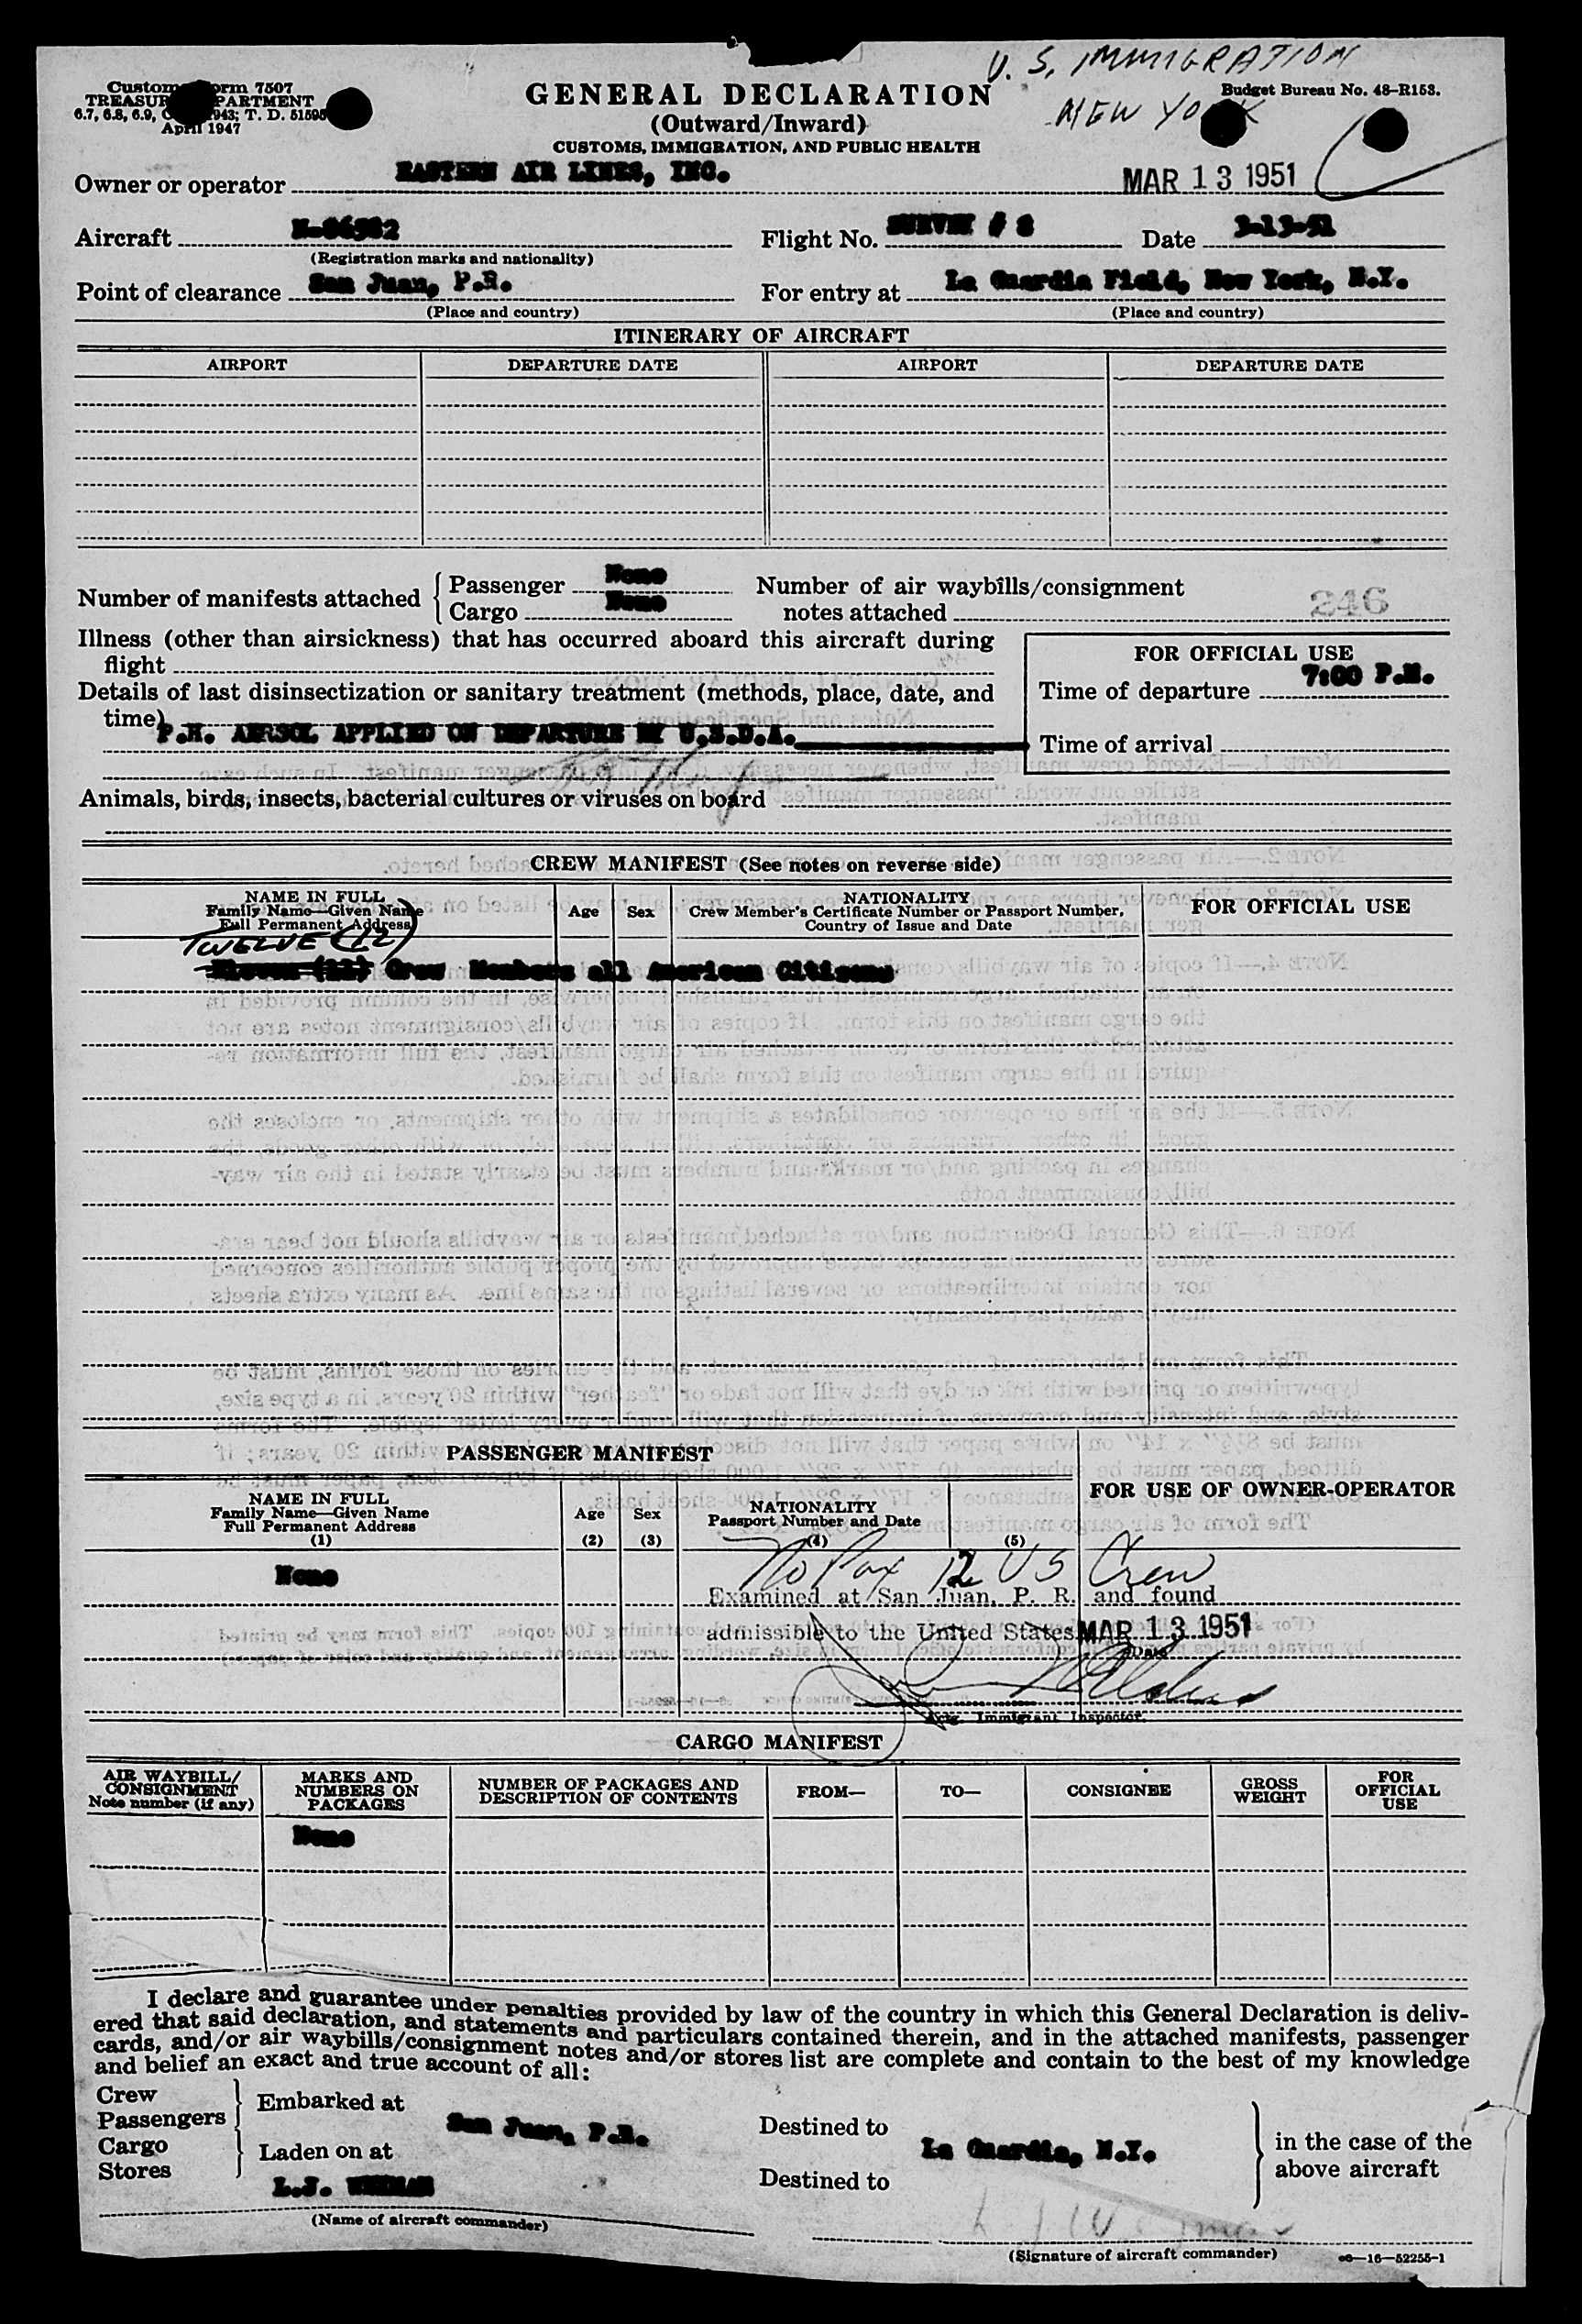 U. S. IMMIGRATION
NEW YORK
Customs Form 7507
TREASURY DEPARTMENT
6.7, 6.8, 6.9, 1943; T. D. 51595
April 1947
GENERAL DECLARATION
(Outward/Inward)
CUSTOMS, IMMIGRATION, AND PUBLIC HEALTH
Budget Bureau No. 48-R153.
Owner or operator EASTERN AIR LINES, INC. MAR 13 1951
Aircraft Flight No. SURVEY # 8 Date 3-13-51
(Registration marks and nationality)
Point of clearance San Juan, P.R. For entry at La Guardia Field, New York, N.Y.
(Place and country) (Place and country)
ITINERARY OF AIRCRAFT
AIRPORT DEPARTURE DATE AIRPORT DEPARTURE DATE
Number of manifests attached { Passenger None Number of air waybills/consignment
Cargo None notes attached 246
Illness (other than airsickness) that has occurred aboard this aircraft during
flight
FOR OFFICIAL USE
Time of departure 7:00 P.M.
Details of last disinsectization or sanitary treatment (methods, place, date, and
time)
P.H. AERSOL APPLIED ON DEPARTURE BY U.S.D.A.
Time of arrival
Animals, birds, insects, bacterial cultures or viruses on board
CREW MANIFEST (See notes on reverse side)
NAME IN FULL
Family Name—Given Name
Full Permanent Address
Age Sex
NATIONALITY
Crew Member's Certificate Number or Passport Number,
Country of Issue and Date
FOR OFFICIAL USE
TWELVE (12)
Eleven (11) Crew Members all American Citizens
PASSENGER MANIFEST
FOR USE OF OWNER-OPERATOR
NAME IN FULL
Family Name—Given Name
Full Permanent Address
(1)
Age
(2)
Sex
(3)
NATIONALITY
Passport Number and Date
(4) (5)
None
No Pax 12 US Crew
Examined at San Juan, P. R. and found
admissible to the United States MAR 13 1951
Date
Actg. Immigrant Inspector.
CARGO MANIFEST
AIR WAYBILL/
CONSIGNMENT
Note number (if any)
MARKS AND
NUMBERS ON
PACKAGES
NUMBER OF PACKAGES AND
DESCRIPTION OF CONTENTS
FROM— TO— CONSIGNEE
GROSS
WEIGHT
FOR
OFFICIAL
USE
None
I declare and guarantee under penalties provided by law of the country in which this General Declaration is deliv-
ered that said declaration, and statements and particulars contained therein, and in the attached manifests, passenger
cards, and/or air waybills/consignment notes and/or stores list are complete and contain to the best of my knowledge
and belief an exact and true account of all:
Crew
Passengers } Embarked at San Juan, P.R. Destined to La Guardia, N.Y.
Cargo
Stores } Laden on at Destined to
in the case of the
above aircraft
L.J.
(Name of aircraft commander)
(Signature of aircraft commander)
16—52255-1